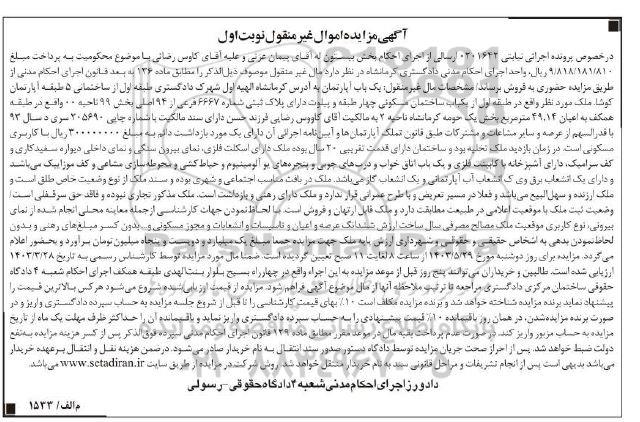 آگهی مزایده اموال غیر منقول نوبت اول
درخصوص پرونده اجرائی نیابتی ۰۳۰۱۶۴۲ ارسالی از اجرای احکام بخش بیستون له آقای پیمان عزتی و علیه آقای کاوس رضائی با موضوع محکومیت به پرداخت مبلغ
۹/۸۱۸/۱۸۱/۸۱۰ ریال، واحد اجرای احکام مدنی دادگستری کرمانشاه در نظر دارد مال غیر منقول موصوف ذیل‌الذکر را مطابق ماده ۱۳۶ به بعد قانون اجرای احکام مدنی از
طریق مزایده حضوری به فروش برساند: مشخصات مال غیر منقول: یک باب آپارتمان به آدرس کرمانشاه الهیه اول شهرک دادگستری طبقه اول از ساختمانی ۵ طبقه آپارتمان
کوشا. ملک مورد نظر واقع در طبقه اول از یکباب ساختمان مسکونی چهار طبقه و پیلوت دارای پلاک ثبتی شماره ۶۶۶۷ فرعی از ۹۴ اصلی بخش ۹۹ ناحیه ۰۰ واقع در طبقه
همکف به اعیان ۴۹.۱۴ مترمربع بخش یک حومه کرمانشاه ناحیه ۲ به مالکیت آقای کاووس رضایی فرزند حسن دارای سند مالکیت با شماره چاپی ۲۰۵۶۹۰ سری د سال ۹۳
با قدرالسهم از عرصه و سایر مشاعات و مشترکات طبق قانون تملک آپارتمان‌ها و آیین‌نامه اجرائی آن دارای یک مورد بازداشت دائم به مبلغ ۳۰۰۰۰۰۰۰۰۰ ریال با کاربری
مسکونی است. در زمان بازدید ملک تخلیه بود و ساختمان دارای قدمت تقریبی ۲۰ سال بوده ملک دارای اسکلت فلزی، نمای بیرون سنگی و نمای داخلی دیواره سفیدکاری و
کف سرامیک، دارای آشپزخانه با کابینت فلزی و یک باب اتاق خواب و درب‌های چوبی و پنجره‌های یو آلومینیوم و حیاط کشی و محوطه‌سازی مشاعی و کف موزاییک می‌باشد
و دارای یک انشعاب برق وی ک انشعاب آب آپارتمانی و یک انشعاب گاز می‌باشد. ملک در بافت مناسب اجتماعی و شهری بوده و سند ملک از نوع وضعیت خاص طلق است و
ملک ارزنده و سهل‌البیع می‌باشد و فعلا در مسیر تعریض و یا طرح عمرانی قرار ندارد و ملک دارای رهنی و بازداشت است. ملک مذکور تجاری نبوده و فاقد حق سرقفلی است/
وضعیت ثبت ملک با موقعیت اعلامی در طبیعت مطابقت دارد و ملک قابل ارتهان و فروش است. با لحاظ نمودن جهات کارشناسی از جمله معاینه محلی انجام شده از نمای
بیرونی، نوع کاربری موقعیت ملک مصالح مصرفی سال ساخت ارزش ششدانگ عرصه و اعیان و تاسیسات و انشعابات و مجوز مسکونی و... بدون کسر مبلغ‌های رهنی و بدون
لحاظ نمودن بدهی به اشخاص حقیقی و حقوقی و شهرداری ارزش پایه ملک جهت مزایده جمعا مبلغ یک میلیارد و دویست و پنجاه میلیون تومان برآورد و بحضور اعلام
می‌گردد. مزایده برای روز دوشنبه مورخ ۱۴۰۳/۵/۲۹ از ساعت ۱۰ لغایت ۱۱ صبح تعیین گردیده است. ضمنا مال مورد مزایده توسط کارشناس رسمی به تاریخ ۱۴۰۳/۳/۲۸
ارزیابی شده است. طالبین و خریداران می‌توانند پنج روز قبل از موعد مزایده به این اجراء واقع در چهارراه بسیج بلوار بنت‌الهدی طبقه همکف اجرای احکام شعبه ۴ دادگاه
حقوقی ساختمان مرکزی دادگستری مراجعه تا ترتیب ملاحظه آنها از مال موضوع آگهی فراهم شود. مزایده از قیمت ارزیابی شده شروع می‌شود هر کس بالاترین قیمت را
پیشنهاد نماید برنده مزایده شناخته خواهد شد و برنده مزایده مکلف است ۱۰٪ بهای قیمت کارشناسی را تا قبل از شروع جلسه مزایده به حساب سپرده دادگستری واریز و در
صورت برنده مزایده شدن، در همان روز باقیمانده ۱۰٪ قیمت پیشنهادی را به حساب سپرده دادگستری واریز نماید و باقیمانده آن را حداکثر ظرف مهلت یک ماه از تاریخ
مزایده به حساب مزبور واریز کند. در صورت عدم پرداخت بقیه مال در موعد مقرر مطابق ماده ۱۲۹ قانون اجرای احکام مدنی سپرده فوق‌الذکر پس از کسر هزینه مزایده به نفع
دولت ضبط خواهد شد. پس از احراز صحت جریان مزایده توسط دادگاه دستور صدور سند انتقال به نام خریدار صادر می‌شود. در ضمن هزینه نقل و انتقال بر عهده خریدار
می‌باشد بدیهی است پس از انجام تشریفات و مراحل قانونی سند به نام خریدار منتقل خواهد شد. روش شرکت در مزایده از طریق سایت www.setadiran.ir می‌باشد.
دادورز اجرای احکام مدنی شعبه ۴ دادگاه حقوقی - رسولی
م الف/ ۱۵۳۳